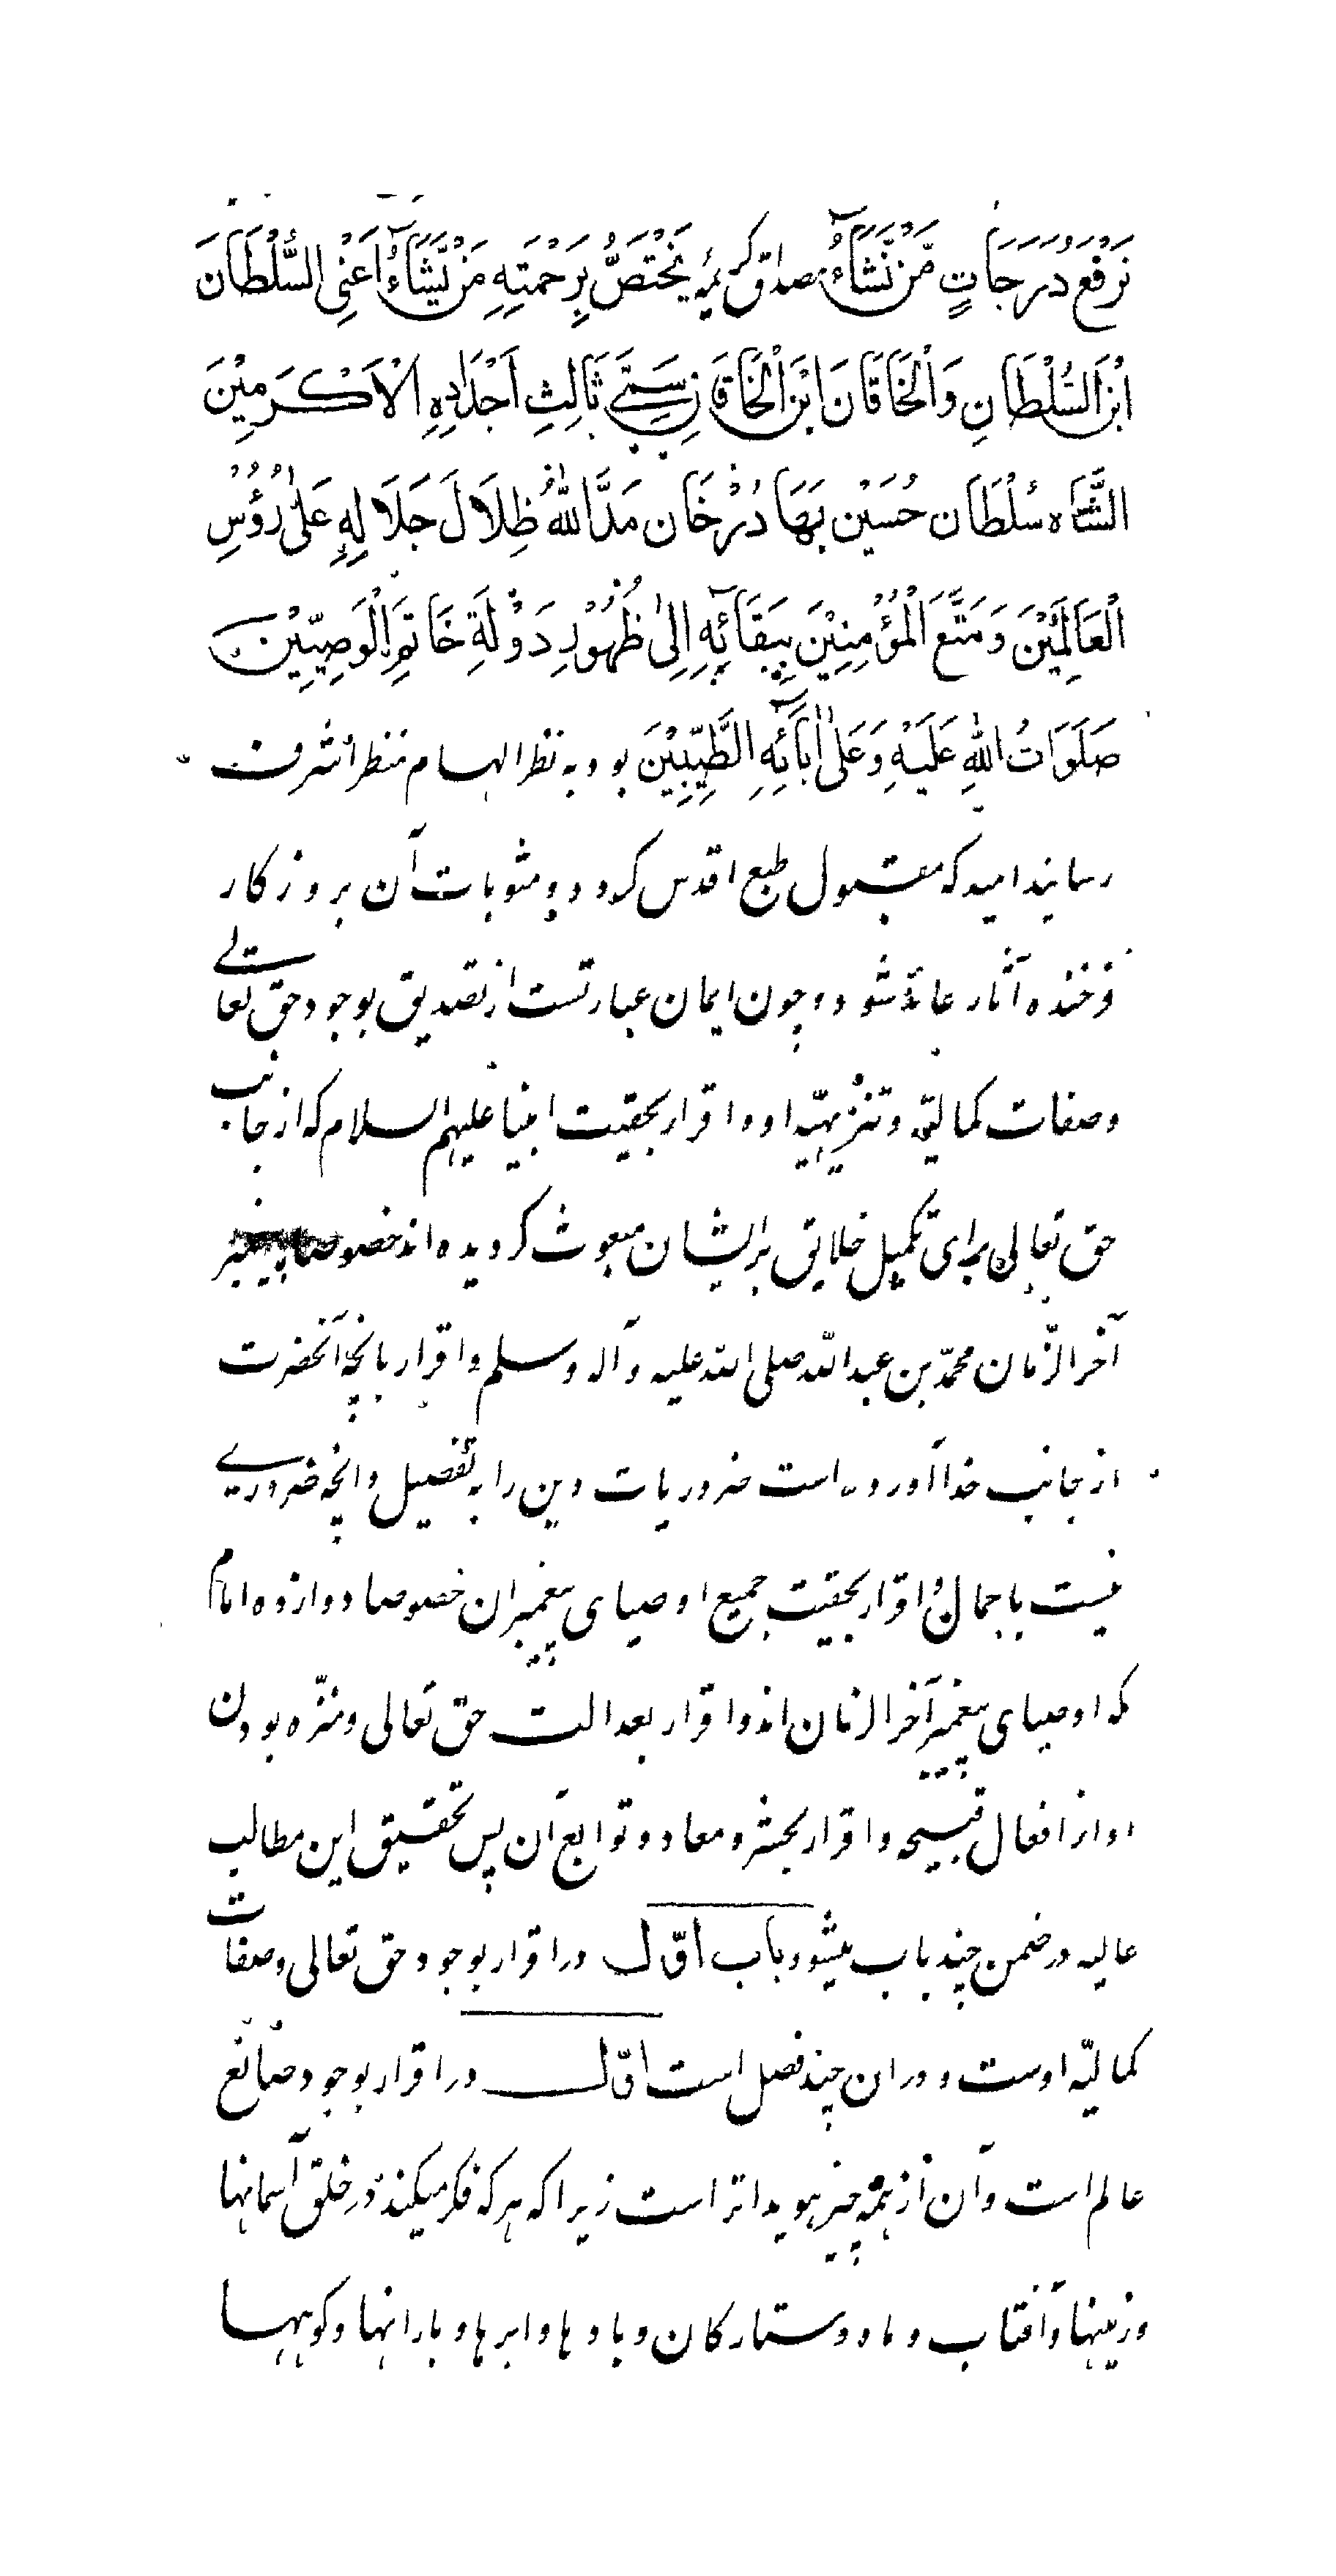 نَرْفَعُ دَرَجَاتٍ مَّنْ نَّشَآءُ مصداق كريمۀ يَخْتَصُّ بِرَحْمَتِهِ مَنْ يَّشَآءُ اَعْنِى السُّلْطَانَ
اِبْنَ السُّلْطَانِ وَالْخَاقَانَ ابْنَ الْخَاقَانِ سَمِيَّ ثَالِثِ اَجْدَادِهِ الْاَكْرَمِيْنَ
الشَّاه سُلْطَان حُسَيْن بَهَادُرْ خَان مَدَّ اللّٰهُ ظِلَالَ جَلَالِهِ عَلٰى رُؤُسِ
الْعَالَمِيْنَ وَمَتَّعَ الْمُؤْمِنِيْنَ بِبَقَآئِهِ اِلٰى ظُهُوْرِ دَوْلَةِ خَاتَمِ الْوَصِيِّيْنَ
صَلَوَاتُ اللّٰهِ عَلَيْهِ وَعَلٰى اٰبَآئِهِ الطَّيِّبِيْنَ بود به نظر الهام منظر اشرف
رسانيد اميد كه مقبول طبع اقدس كردد و مثوبات آن بروزكار
فرخنده آثار عائد شود و چون ايمان عبارتست از تصديق بوجود حق تعالے
و صفات كماليّه و تنزيهيّه او و اقرار بحقيت انبيا عليهم السلام كه از جانب
حق تعالى براى تكميل خلايق بر ايشان مبعوث كرديده اند خصوصا پيغمبر
آخر الزّمان محمّد بن عبد اللّه صلى اللّه عليه و آله و سلم و اقرار بانچه آنحضرت
از جانب خدا آورده است ضروريات دين را به تفصيل و انچه ضرورے
نيست باجمال و اقرار بحقيت جميع اوصياى پيغمبران خصوصا دوازده امام
كه اوصياى پيغمبر آخر الزمان اند و اقرار بعدالت حق تعالى و منزّه بودن
او از افعال قبيحه و اقرار بحشر و معاد و توابع آن پس تحقيق اين مطالب
عاليه در ضمن چند باب ميشود باب اوّل در اقرار بوجود حق تعالى و صفات
كماليّه اوست و در ان چند فصل است اوّل در اقرار بوجود صانع
عالم است و آن از همه چيز هويداتر است زيرا كه هر كه فكر ميكند در خلق آسمانها
و زمينها و آفتاب و ماه و ستاركان و بادها و ابرها و بارانها و كوهها